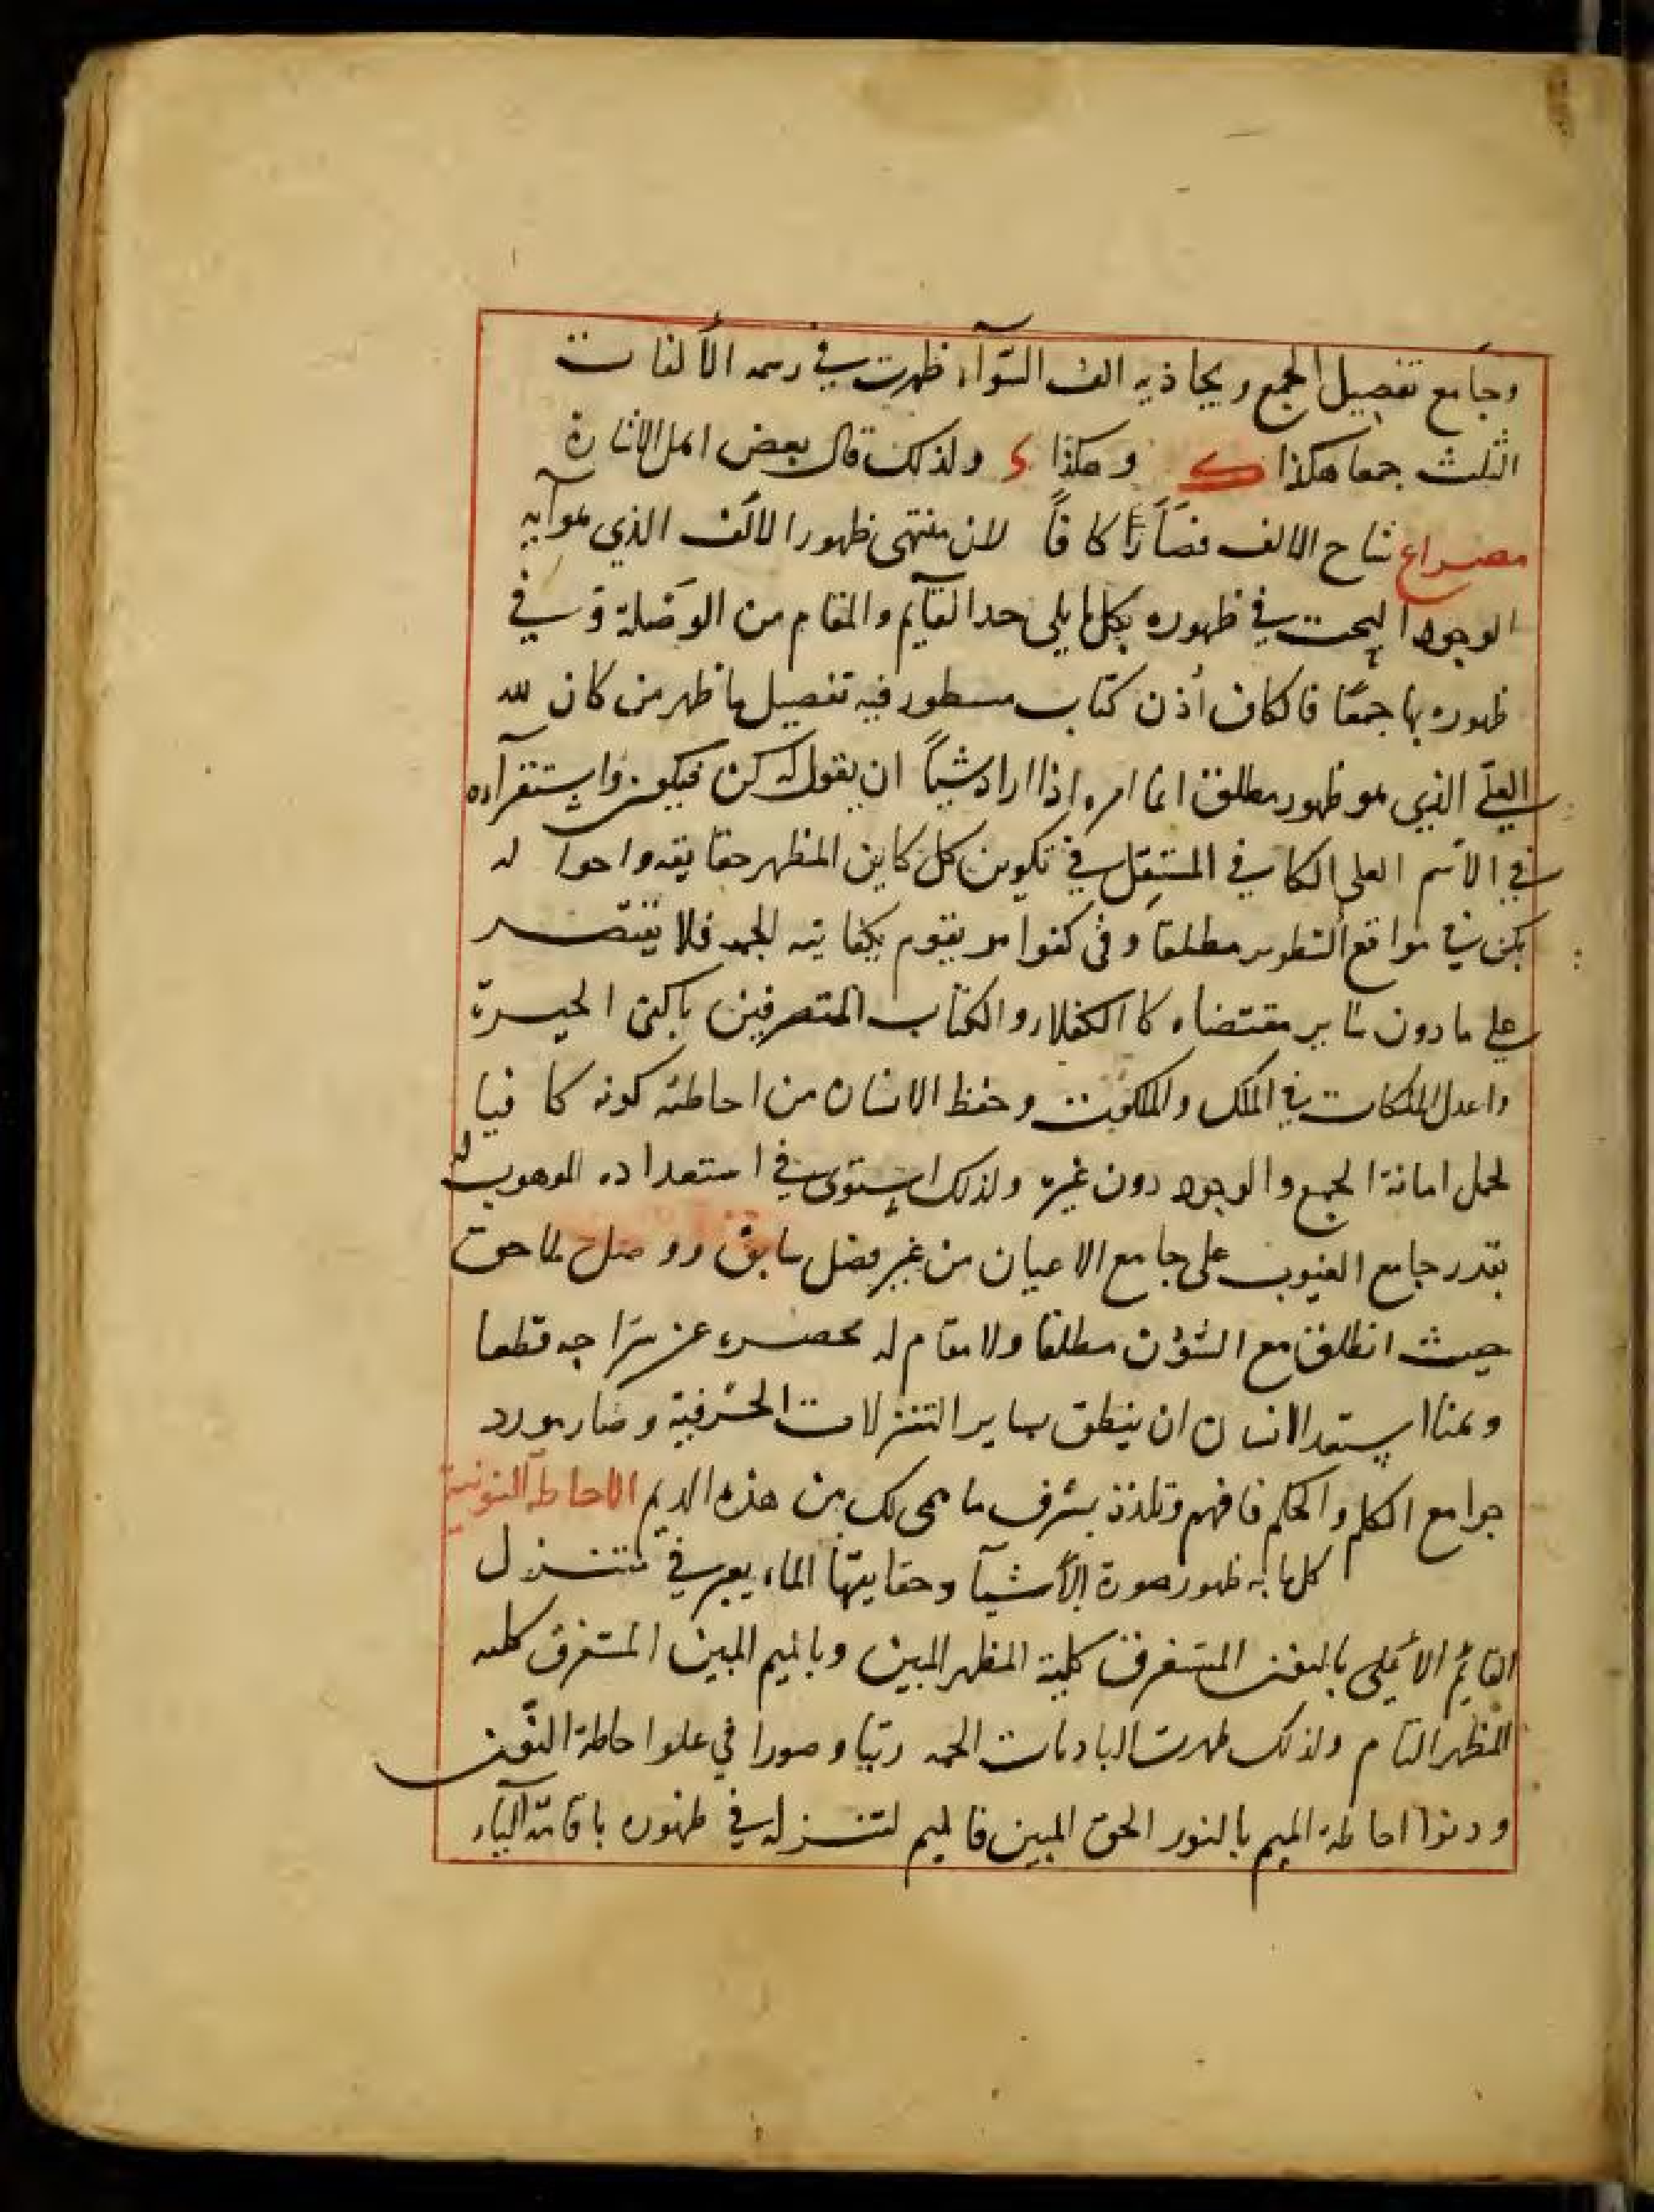 وجامع تفصيل الجمع ويحاذيه الف السّوآء ظهرت في رسمه الألفات
الثلث جمعا هكذا ک وهكذا ء ولذلك قال بعض اهل الاشارة
مصراع ثناح الالف فصَارَتْ كافاً لان منتهى ظهور الالف الذي هو آية
الوجود البحت في ظهوره بكل ما يلي حد القآيم والمقام من الوَصْلة و في
ظهوره بها جمعًا فالكاف أذن كتاب مسطور فيه تفصيل ما ظهر من كان لله
العليّ الذي هو ظهور مطلق انما امره اذا اراد شيأً ان يقول له كن فيكون واستقرآره
في الاسم العلى الكافي المستقل في تكوين كل كاين المظهر حقايقه واحواله
بكن في مواقع التطوير مطلقا وفى كفوا هو يقوم بكفايته للجمه فلا يقتصر
على ما دون ساير مقتضاه كا الكفلاء والكتاب المتصرفين باكفى الحيرة
واعدل الملكات في الملك والملكوت وحفظ الانسان من احاطته كونه كافيا
لحمل امانة الجمع والوجود دون غيره ولذلك استوى في استعداده الموهوب له
بقدر جامع الغيوب على جامع الاعيان من غير فصل سابق ووصل لاحق
حيث انطلق مع الشؤن مطلقا ولا مقام له يحصره عن سراحه قطعا
وهنا استعد الانسان ان ينطق بساير التنزلات الحرفية وصار مورد
جوامع الكلم والحكم فافهم وتلذذ بشرف ما همى لك من هذه الديم الاحاطة النونية
كلما به ظهور صورة الأشيآ وحقايقها الماء يعبر في تنزل
القايم الأعلى بالنون المستغرق كلية المظهر المبين وبالميم المبين المستغرق كليه
المظهر التام ولذلك ظهرت الباديات الجمه رتبا وصورا في علو احاطة النون
ودنوا احاطة الميم بالنور الحق المبين فالميم لتنزله في ظهوره باقامة اليآء